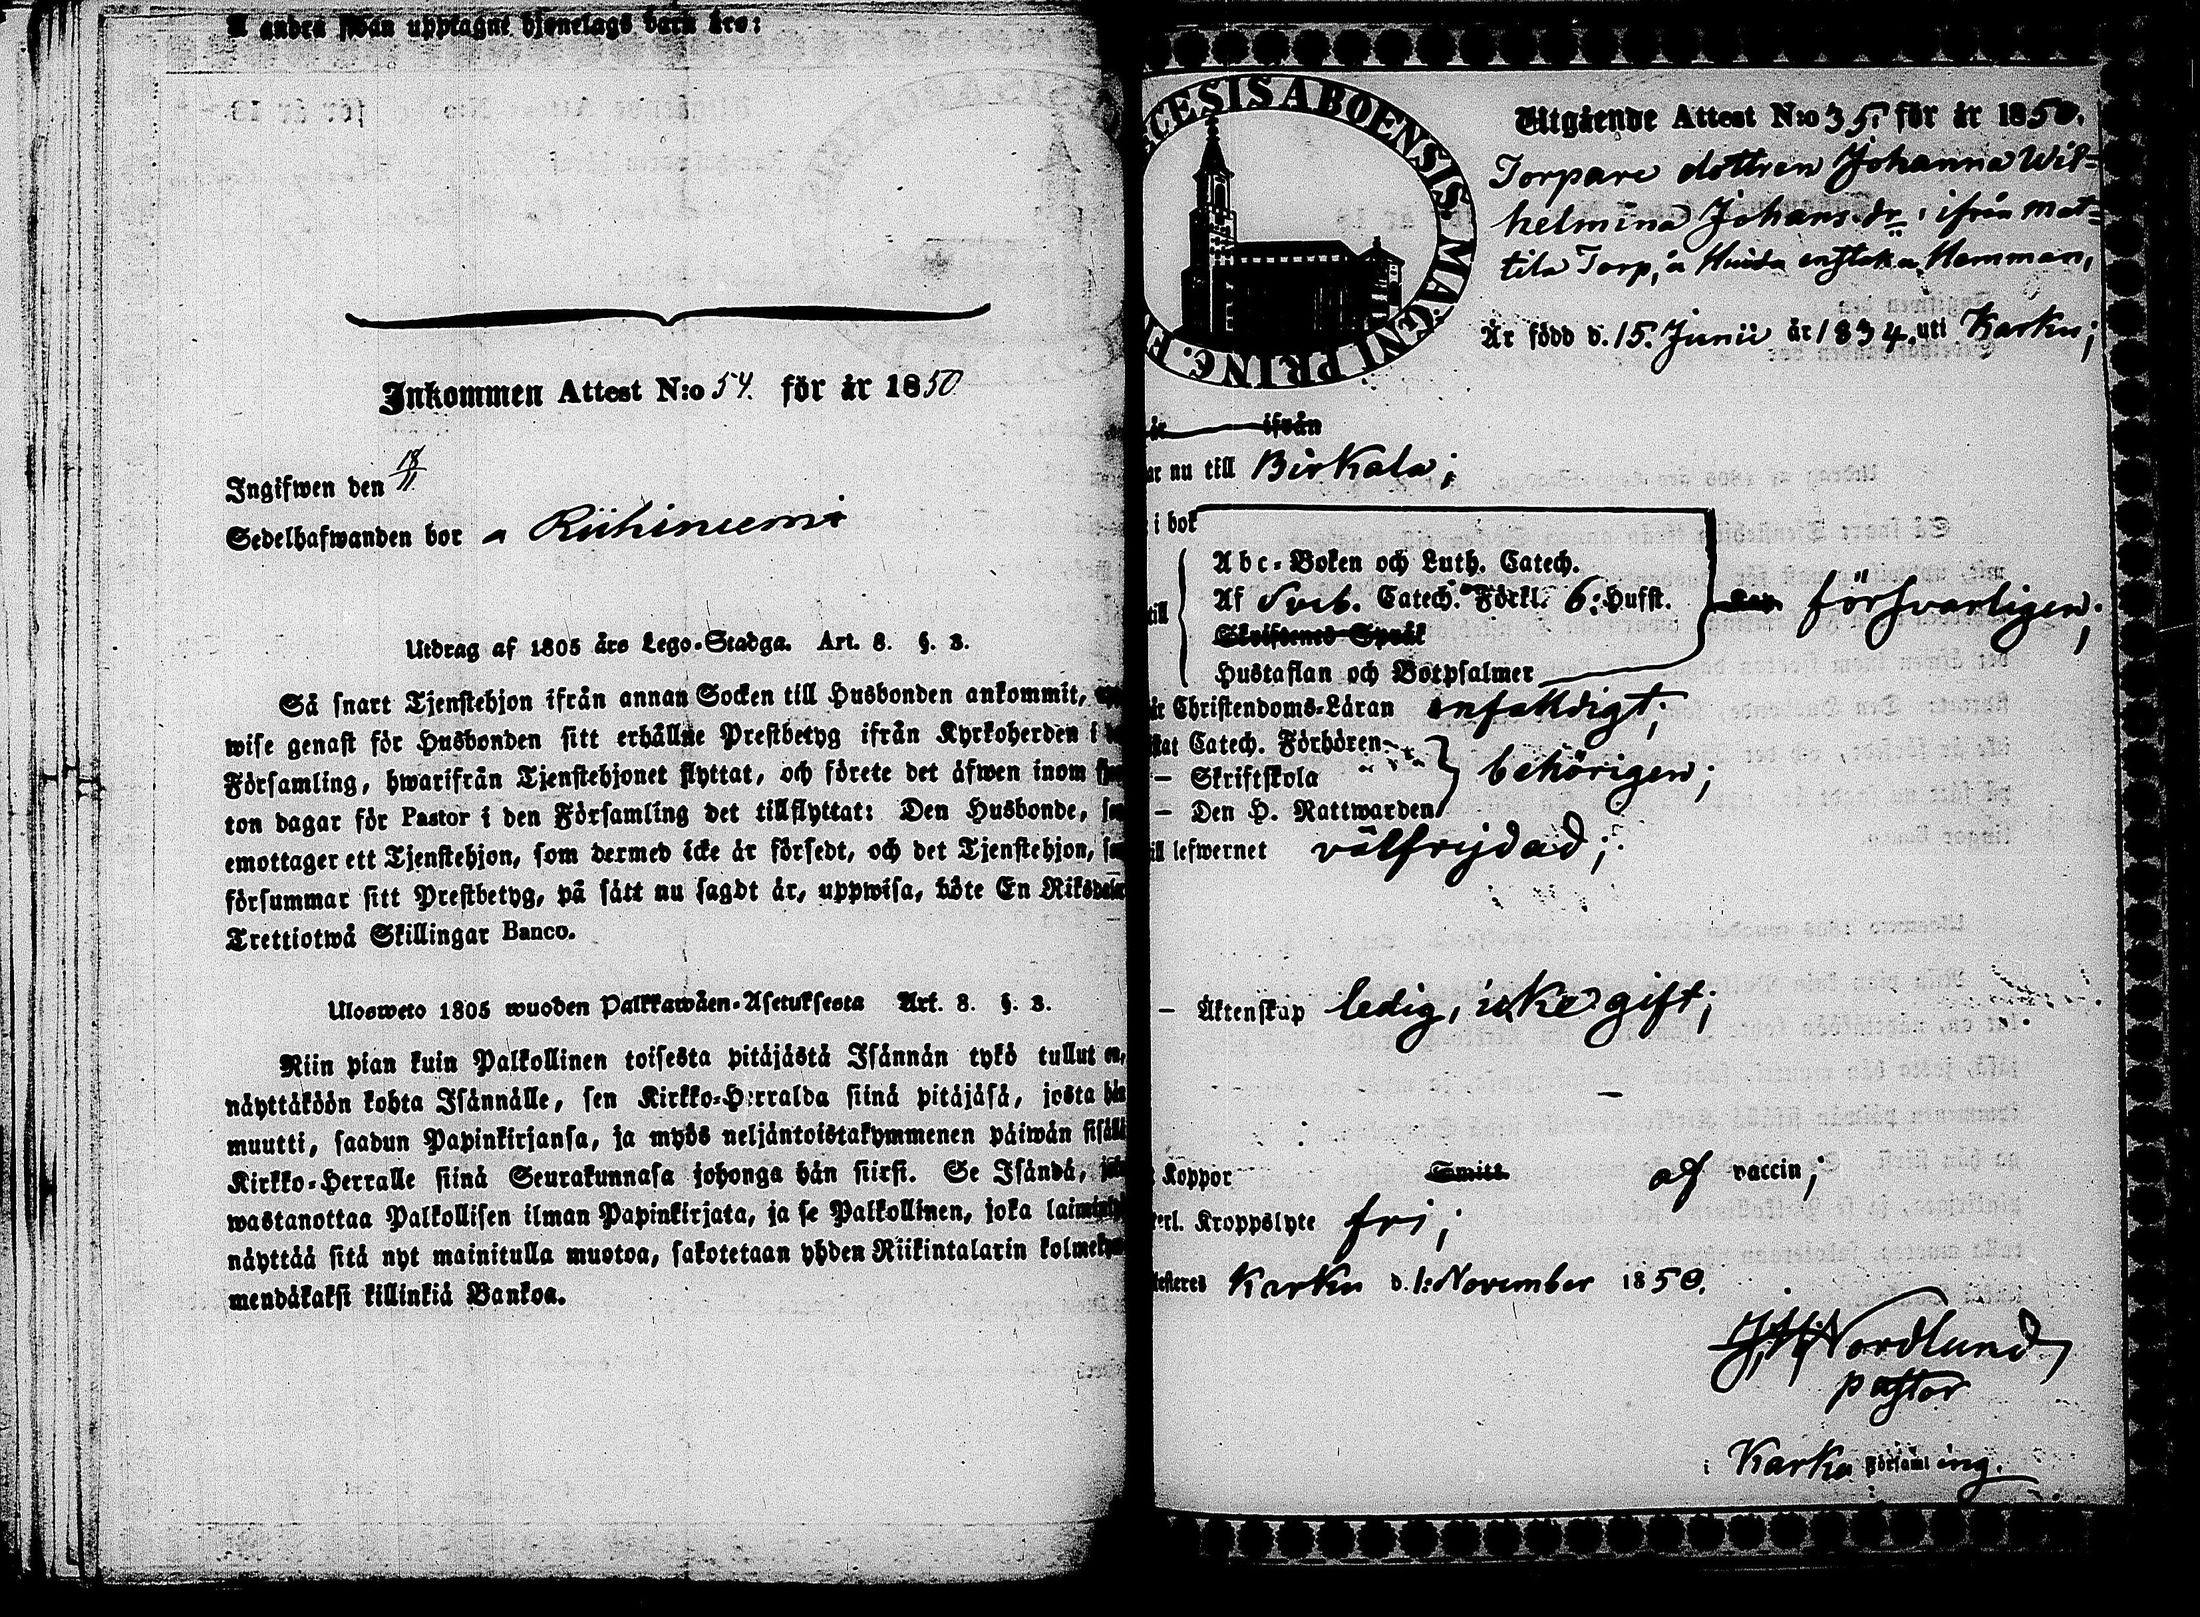 å andra sidan upptagne tjenelags barn äro:
Inkommen Attest N:o 54. för år 1850
Ingifwen den 18/11
Sedelhafwanden bor a Riihiniemi
Utdrag af 1805 års Lego-Stadga. Art. 8. §. 3.
Så snart Tjenstehjon ifrån annan Socken till Husbonden ankommit,
wise genast för Husbonden sitt erhållne Prestbetyg ifrån Kyrkoherden i
Församling, hwarifrån Tjenstehjonet flyttat, och förete det äfwen inom
ton dagar för Pastor i den Församling det tillflyttat: Den Husbonde,
emottager ett Tjenstehjon, som dermed icke är försedt, och det Tjenstehjon,
försummar sitt Prestbetyg, på sätt nu sagdt är, uppwisa, böte En Riksdaler
Trettiotwå Skillingar Banco.
Ulosweto 1805 wuoden Palkkawäen-Asetuksesta Art. 8. §. 3.
Niin pian kuin Palkollinen toisesta pitäjästä Isännän tykö tullut on,
näyttäköön kohta Isännälle, sen Kirkko-Herralda siinä pitäjäsä, josta hän
muutti, saadun Papinkirjansa, ja myös neljäntoistakymmenen päiwän sisällä
Kirkko-Herralle siinä Seurakunnasa johonga hän siirsi. Se Isändä,
wastanottaa Palkollisen ilman Papinkirjata, ja se Palkollinen, joka
näyttää sitä nyt mainitulla muotoa, sakotetaan yhden Riikintalarin
mendäkaksi killinkiä Bankoa.
ECESIS ABOENSIS MAGNI PRINC. F
Utgående Attest N:o 35. för år 1850.
Torpare dottren Johanna Wil=
helmina Johans dr, ifrån Mat=
tila Torp, a Huida enstaka Hemman,
Är född d. 15. Junii år 1834. uti Karku;
är ifrån
ar nu till Birkala;
i bok
Abc-Boken och Luth. Catech.
till Af Sveb. Catech. Förkl. 6: Hufst. försvarligen;
Skriftenes Språk
Hustaflan och Botpsalmer
är Christendoms-Läran enfalldigt;
stat Catech. Förhören
– Skriftskola behörigen;
– Den H. Nattwarden
ill lefwernet välfrijdad;
– Äktenskap ledig, icke gift;
Koppor Smitt af vaccin;
erl. Kroppslyte fri;
testeres Karku d. 1: November 1850.
J. H. Nordlund
pastor
i Karku Församling.